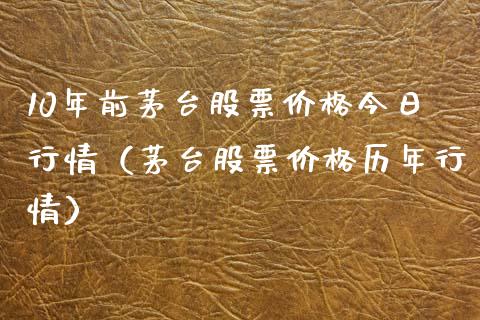 10年前茅台股票价格今日
行情（茅台股票价格历年行
情）